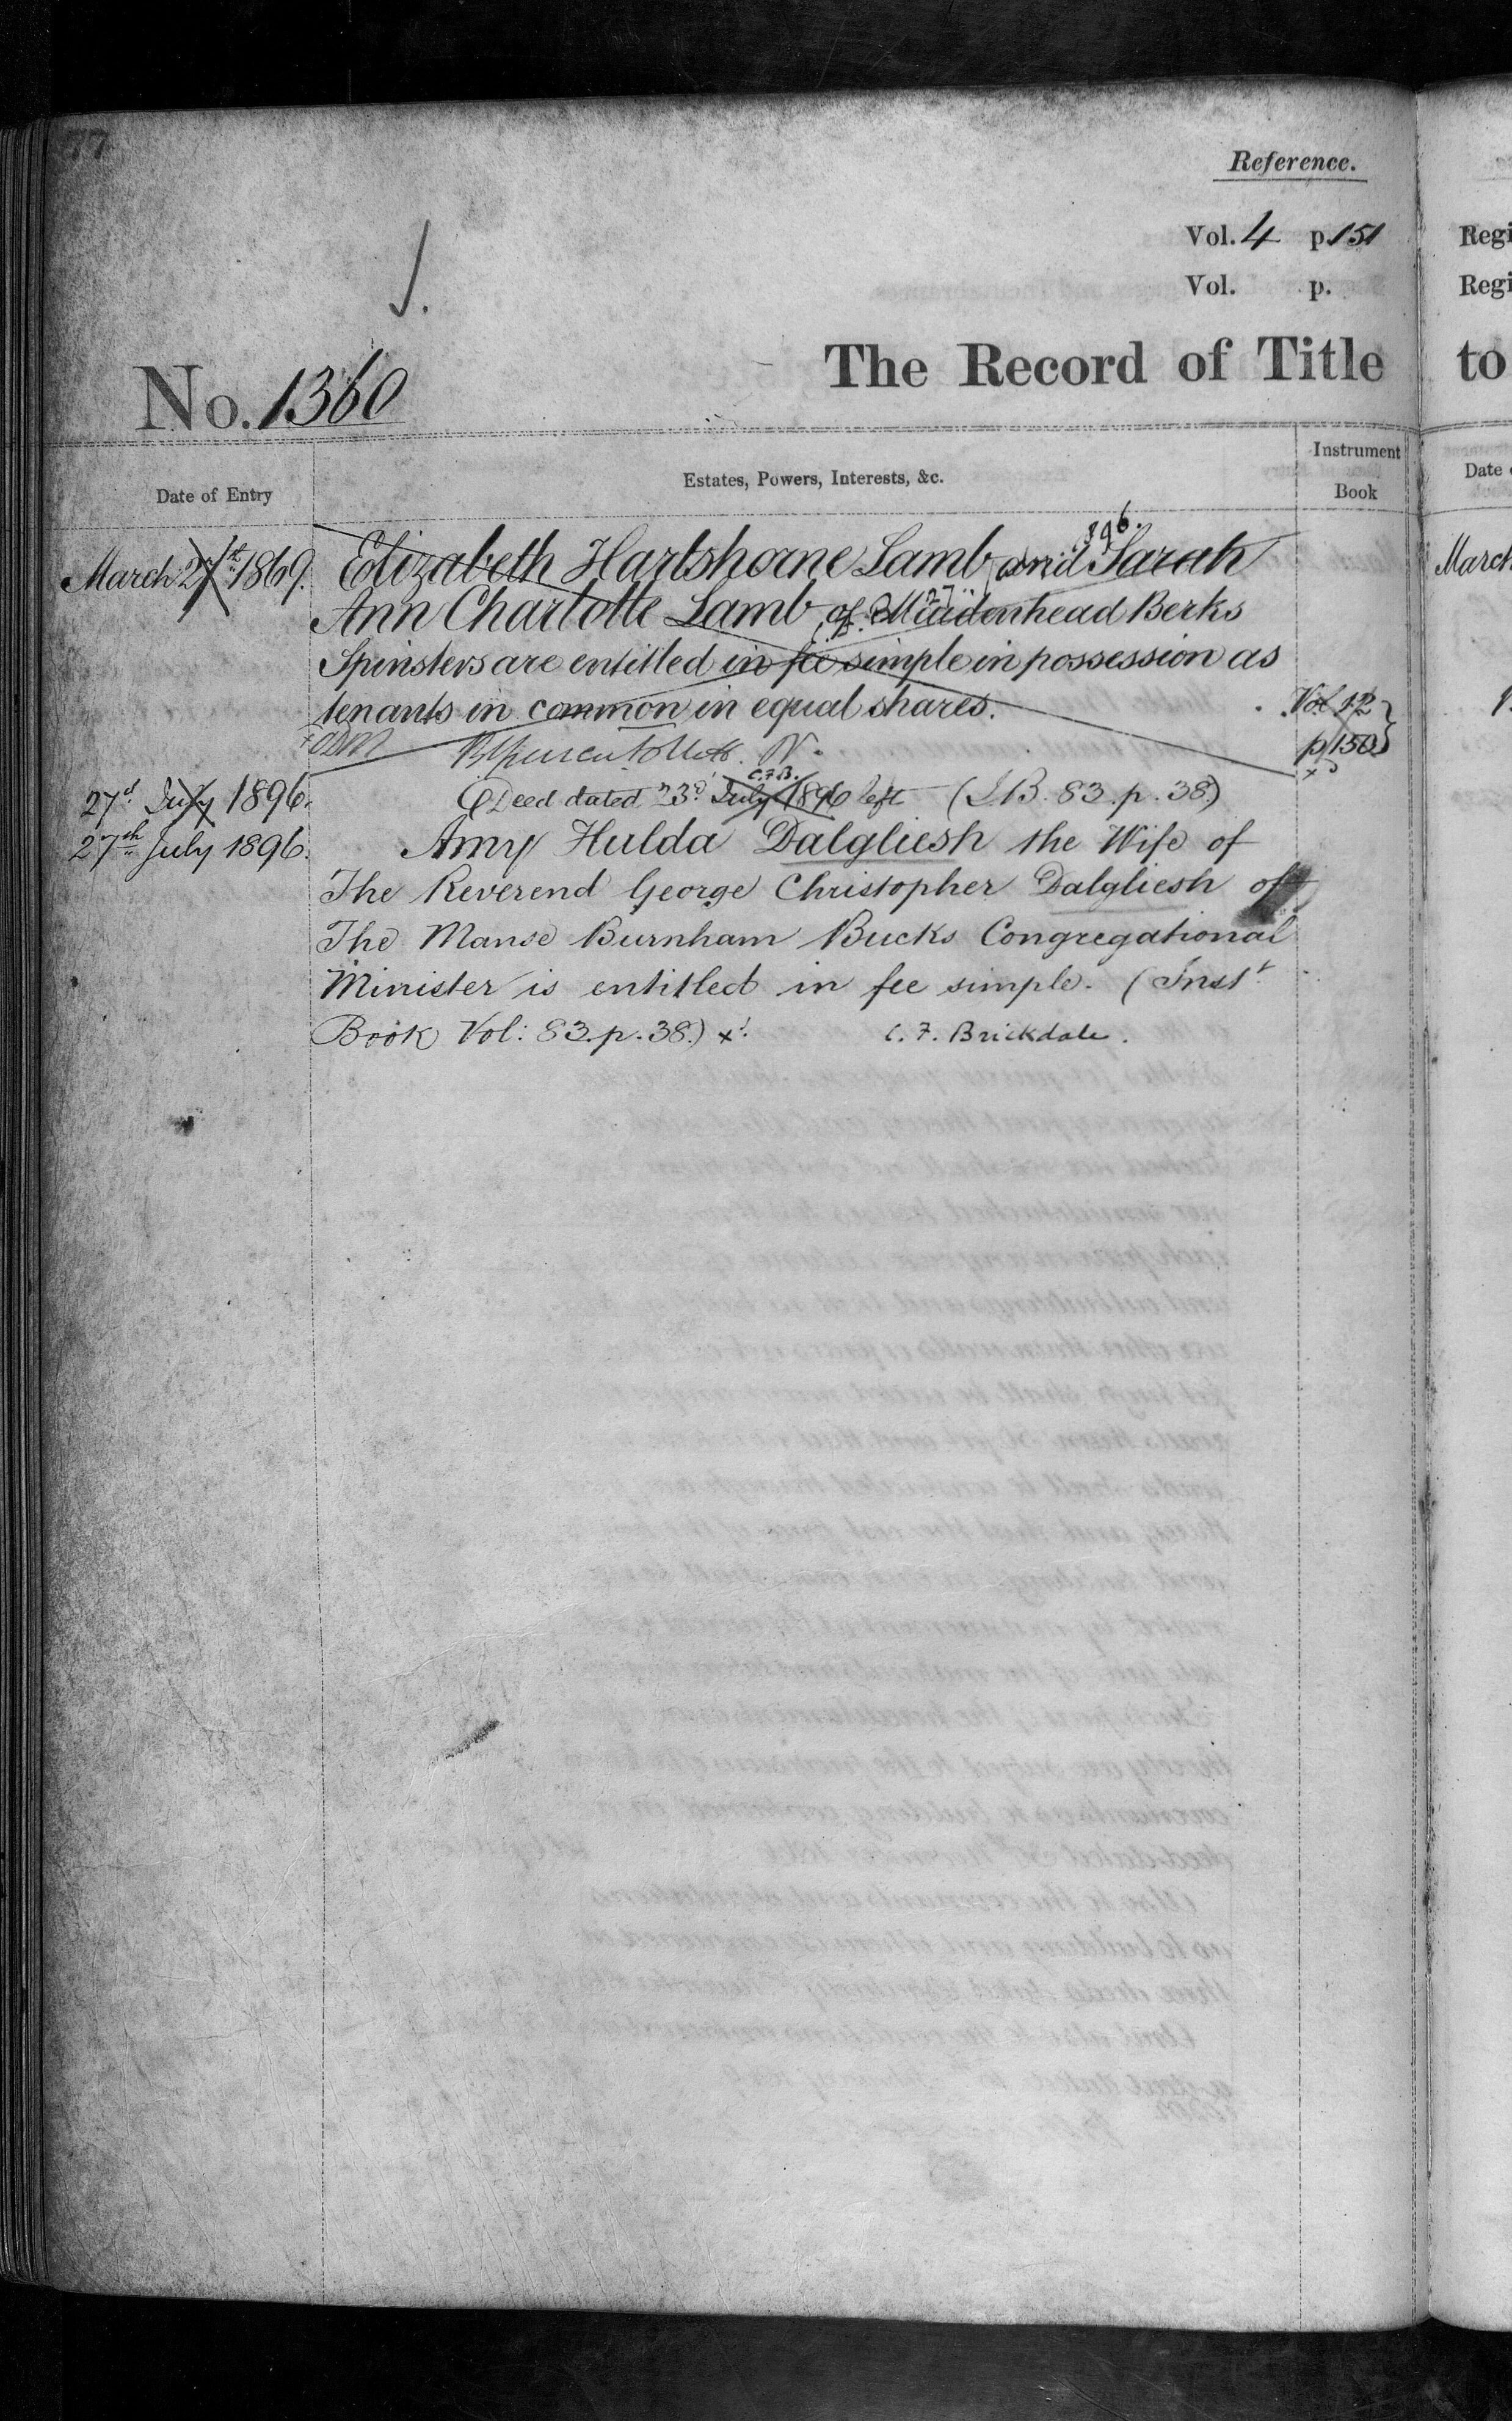 77
Reference.
Vol. 4 p. 151
Vol. p.
Regi
Regi
No. 1360
The Record of Title
to
Date of Entry
Estates, Powers, Interests, &c.
Instrument
Book
Date
March 27th 1869.
Elizabeth Hartshorne Lamb and Sarah
March
Ann Charlotte Lamb of Maidenhead Berks
Spinsters are entitled in fee simple in possession as
tenants in common in equal shares.
Vol 12
p 150
27d July 1896.
C.F.B.
Deed dated 23d July 1896 left (I.B. 83. p. 38.)
27th July 1896.
Amy Hulda Dalgliesh the Wife of
The Reverend George Christopher Dalgliesh of
The Manse Burnham Bucks Congregational
Minister is entitled in fee simple. (Inst
Book Vol: 83. p. 38.) x
C. F. Brickdale.